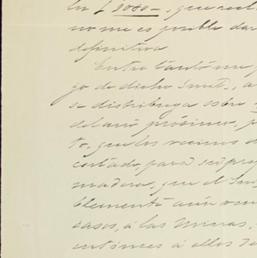 en £ 3000 –, que reci
no me es posible dar
definitiva
Entre tanto me
go de dicho Smit.., a
se distribuya sobre
del año próximo, p
to, que los vecinos d
cortado, para siempre
madera, que el Sr.
blemente aún ven
casos, á las minas,
entónces á ellos de